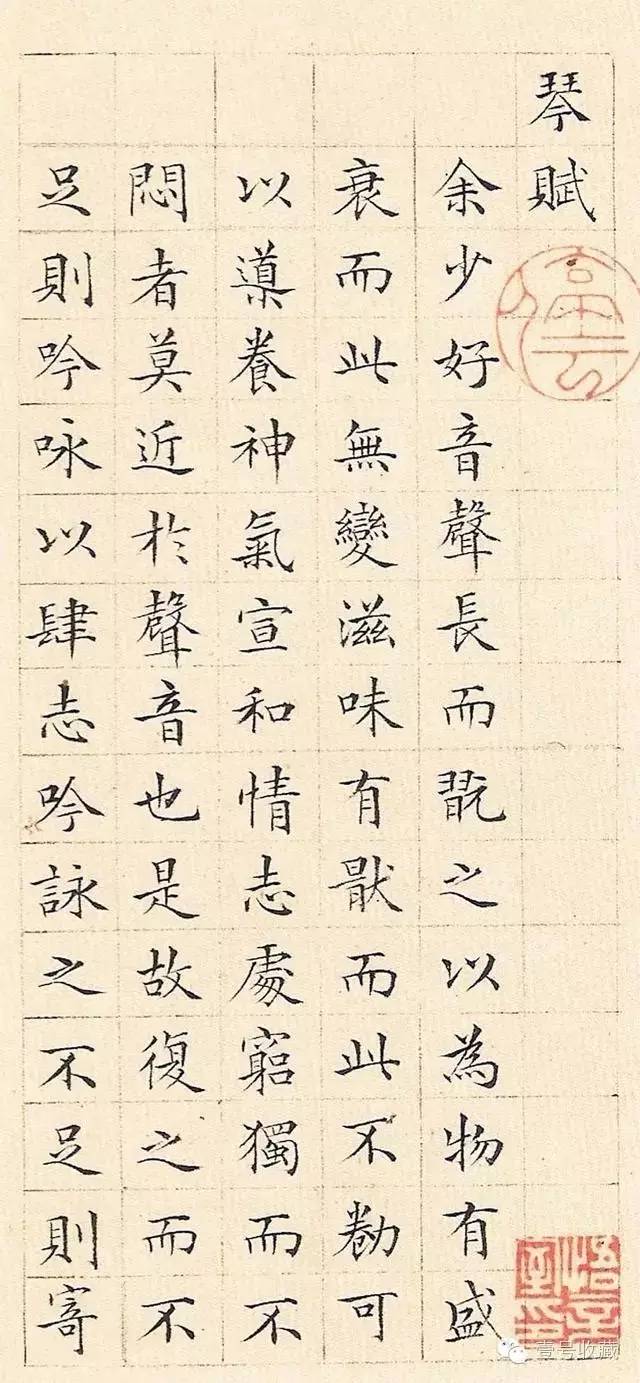 琴賦
余少好音聲長而翫之以為物有盛
衰而此無變滋味有猒而此不勌可
以導養神氣宣和情志處窮獨而不
悶者莫近於聲音也是故復之而不
足則吟咏以肆志吟詠之不足則寄
壹号收藏